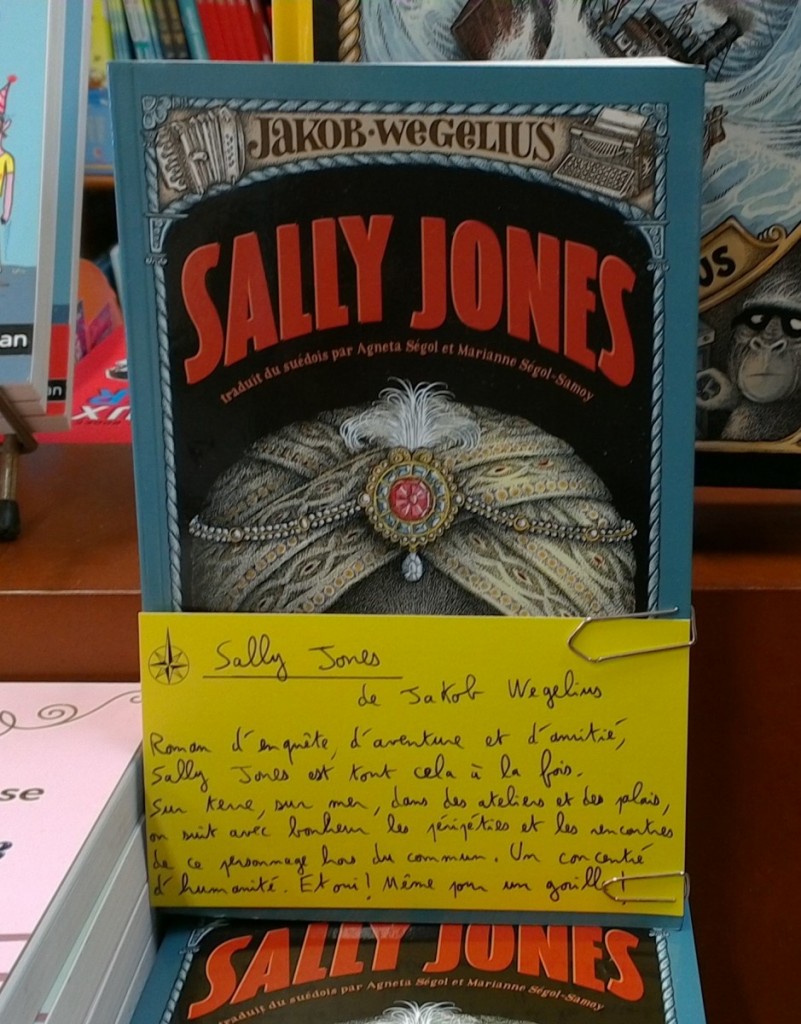 JAKOB·WEGELIUS
SALLY JONES
traduit du suédois par Agneta Ségol et Marianne Ségol-Samoy
Sally Jones
de Jakob Wegelius
Roman d'enquête, d'aventure et d'amitié,
Sally Jones est tout cela à la fois.
Sur terre, sur mer, dans des ateliers et des palais,
on suit avec bonheur les péripéties et les rencontres
de ce personnage hors du commun. Un concentré
d'humanité. Et oui! Même pour un gorille!
SALLY JONES
traduit du suédois par Agneta Ségol et Marianne Ségol-Samoy
US
an
UX
se